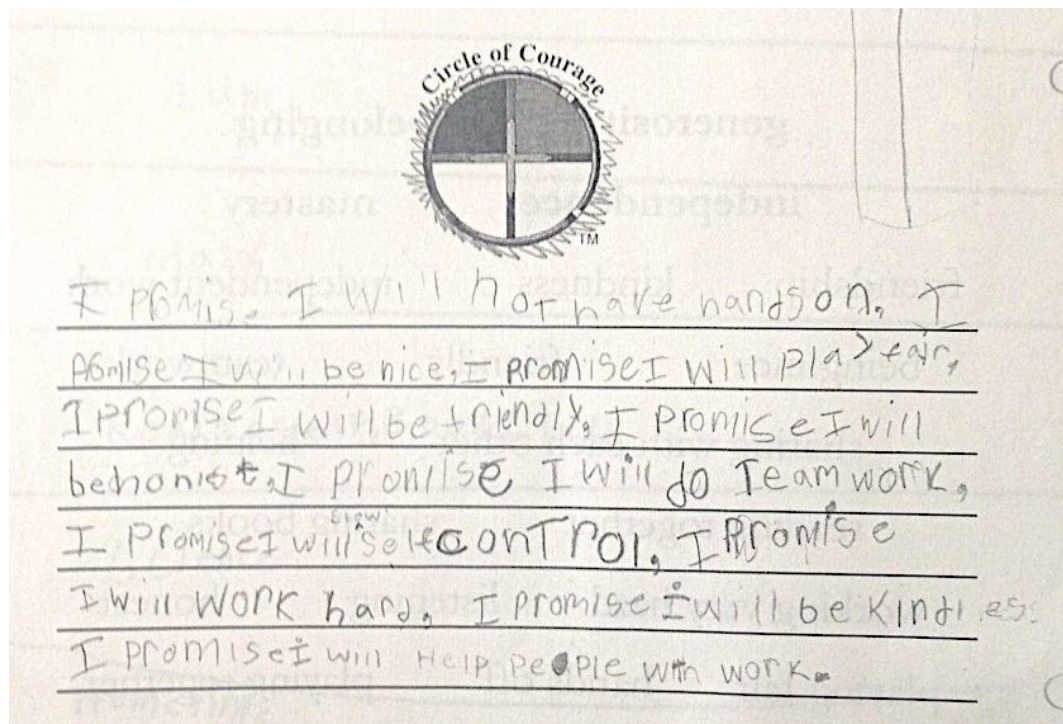 Circle of Courage
TM
I Promis. I will not have hands on. I
Promise I will be nice, I promise I will play fair,
I promise I will be friendly, I promise I will
be honist, I promise I will do Team work,
I promise I will show self conTrol, I promise
I will work hard, I promise I will be Kindless
I promise I will Help people with work.